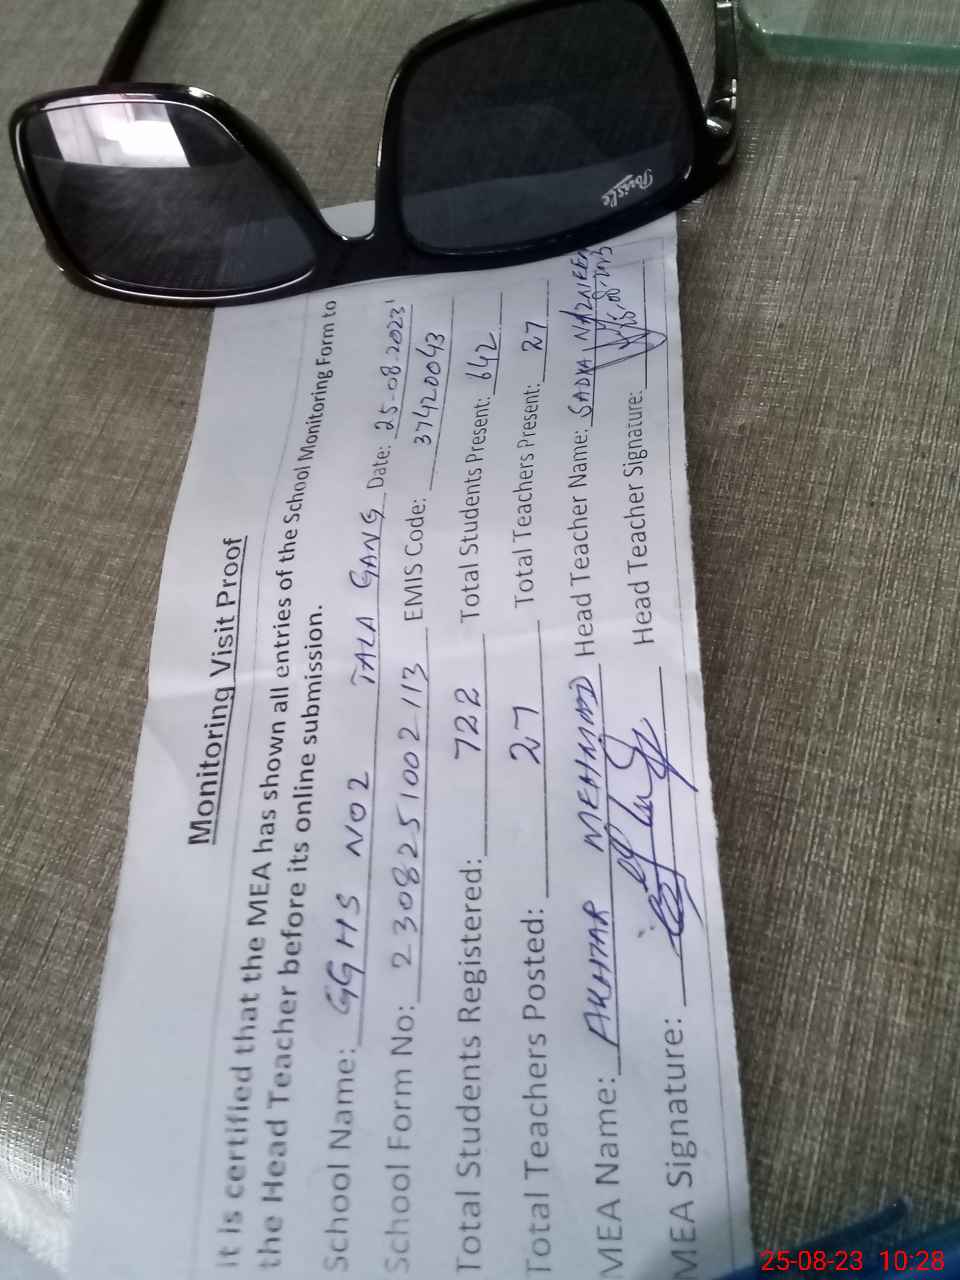 Monitoring Visit Proof
It is certified that the MEA has shown all entries of the School Monitoring Form to
the Head Teacher before its online submission.
School Name: GGHS NO2 TALA GANG Date: 25-08-2023
School Form No: 2308251002113 EMIS Code: 37420043
Total Students Registered: 722 Total Students Present: 642
Total Teachers Posted: 27 Total Teachers Present: 27
MEA Name: AKHTAR MEHMOOD Head Teacher Name: SADIA
MEA Signature: Head Teacher Signature:
25-08-23 10:28